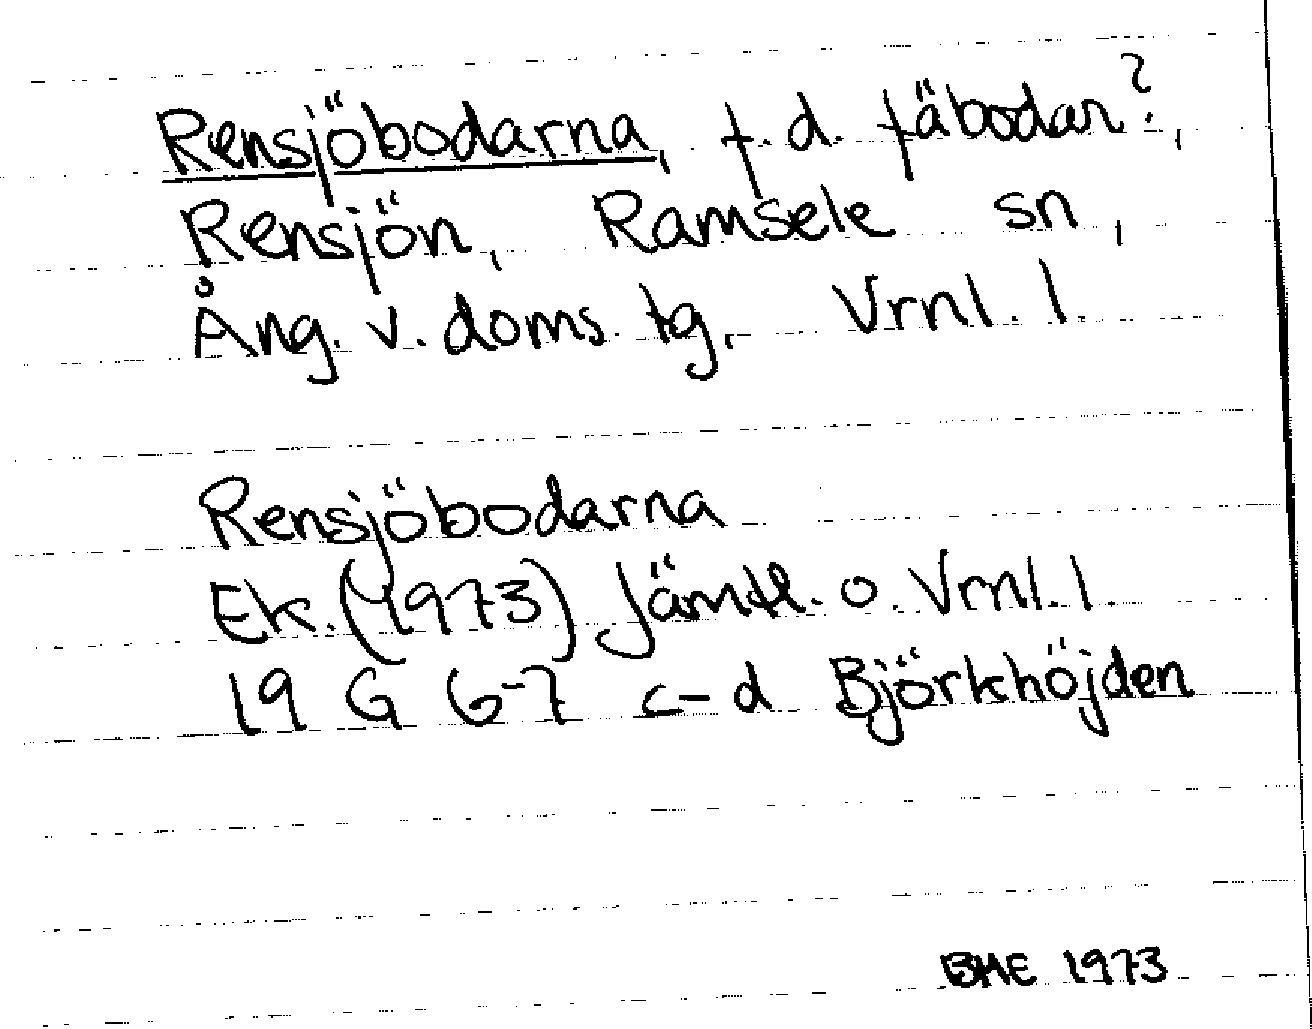 Rensjöbodarna, f.d. fäbodar?,
Rensjön, Ramsele sn,
Ång. v. doms. tg, Vrnl. l.
Rensjöbodarna
Ek. (1973) Jämtl. o. Vrnl. l.
19 G 6-7 c-d Björkhöjden
BHE 1973